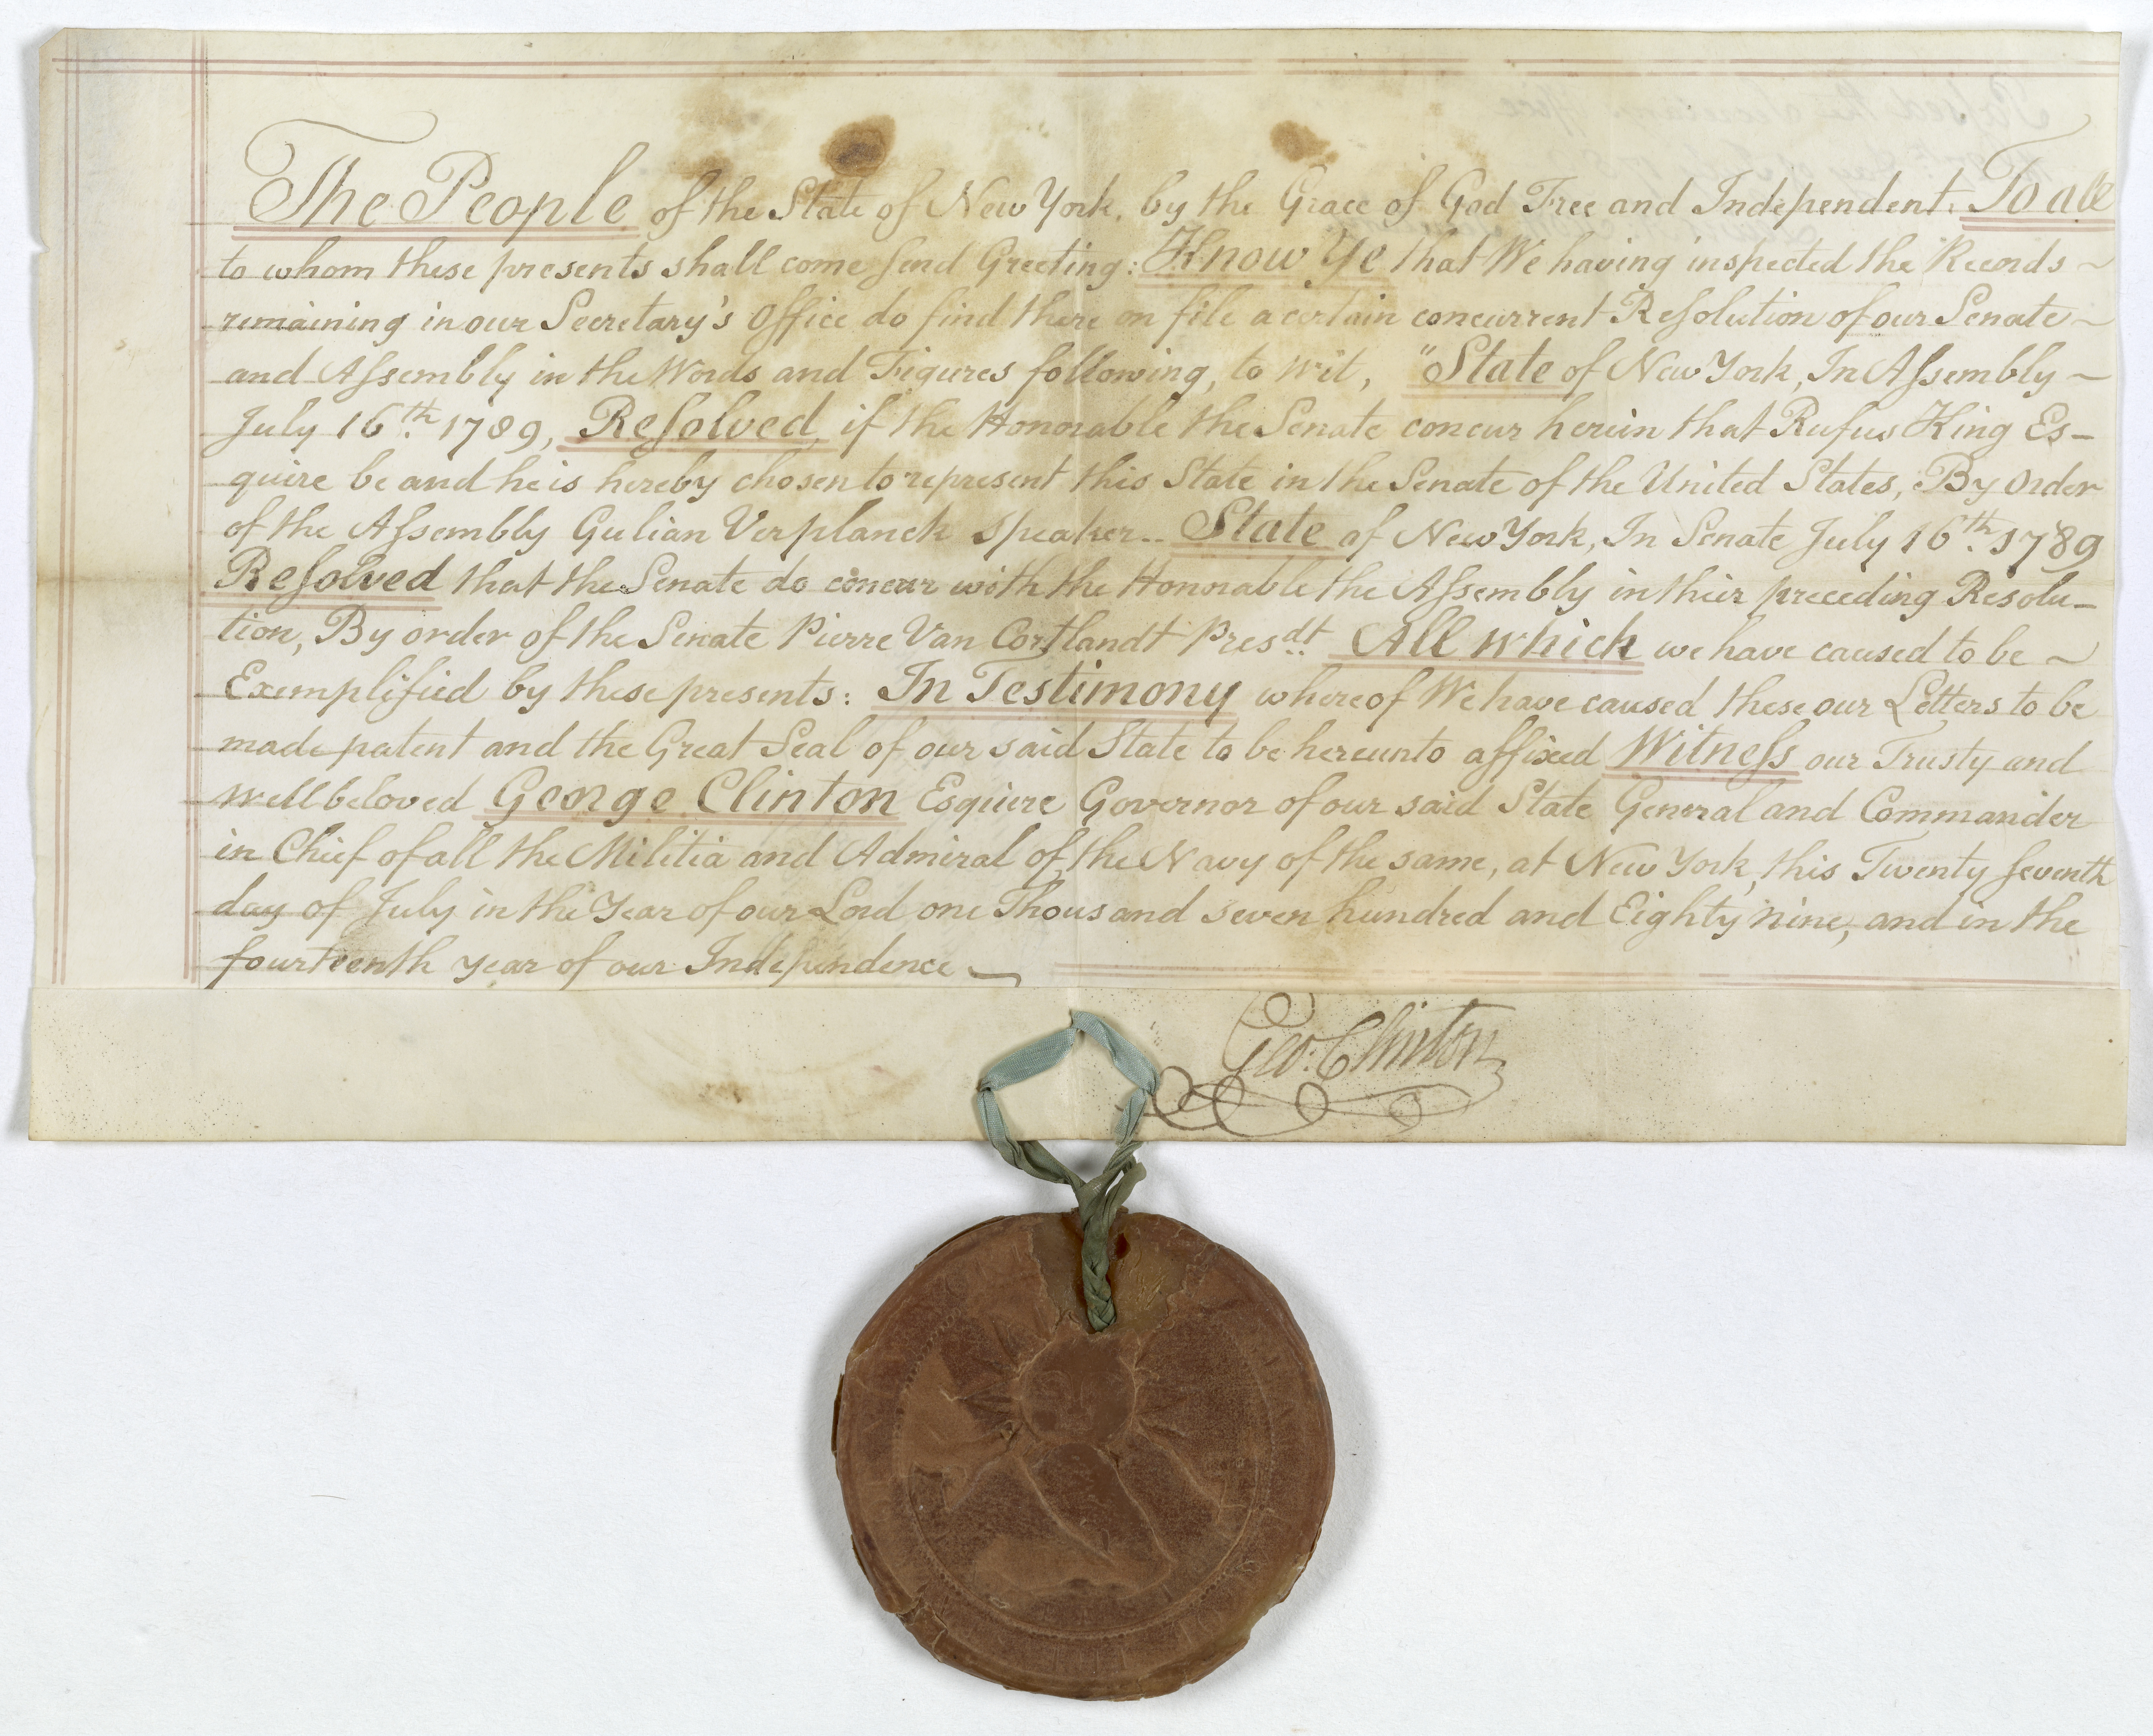 The People of the State of New York, by the Grace of God Free and Independent. To all
to whom these presents shall come send Greeting: Know Ye that We having inspected the Records
remaining in our Secretary's Office do find there on file a certain concurrent Resolution of our Senate
and Assembly in the Words and Figures following, to wit, "State of New York, In Assembly
July 16th. 1789, Resolved, if the Honorable the Senate concur herein that Rufus King Es-
quire be and he is hereby chosen to represent this State in the Senate of the United States, By Order
of the Assembly Gulian Verplanck Speaker.. State of New York, In Senate July 16th. 1789
Resolved that the Senate do concur with the Honorable the Assembly in their preceding Resolu-
tion, By order of the Senate Pierre Van Cortlandt Presdt. All which we have caused to be
Exemplified by these presents: In Testimony whereof We have caused these our Letters to be
made patent and the Great Seal of our said State to be hereunto affixed Witness our Trusty and
well beloved George Clinton Esquire Governor of our said State General and Commander
in Chief of all the Militia and Admiral of the Navy of the same, at New York, this Twenty seventh
day of July in the Year of our Lord one Thousand seven hundred and Eighty nine, and in the
fourteenth year of our Independence
Geo: Clinton